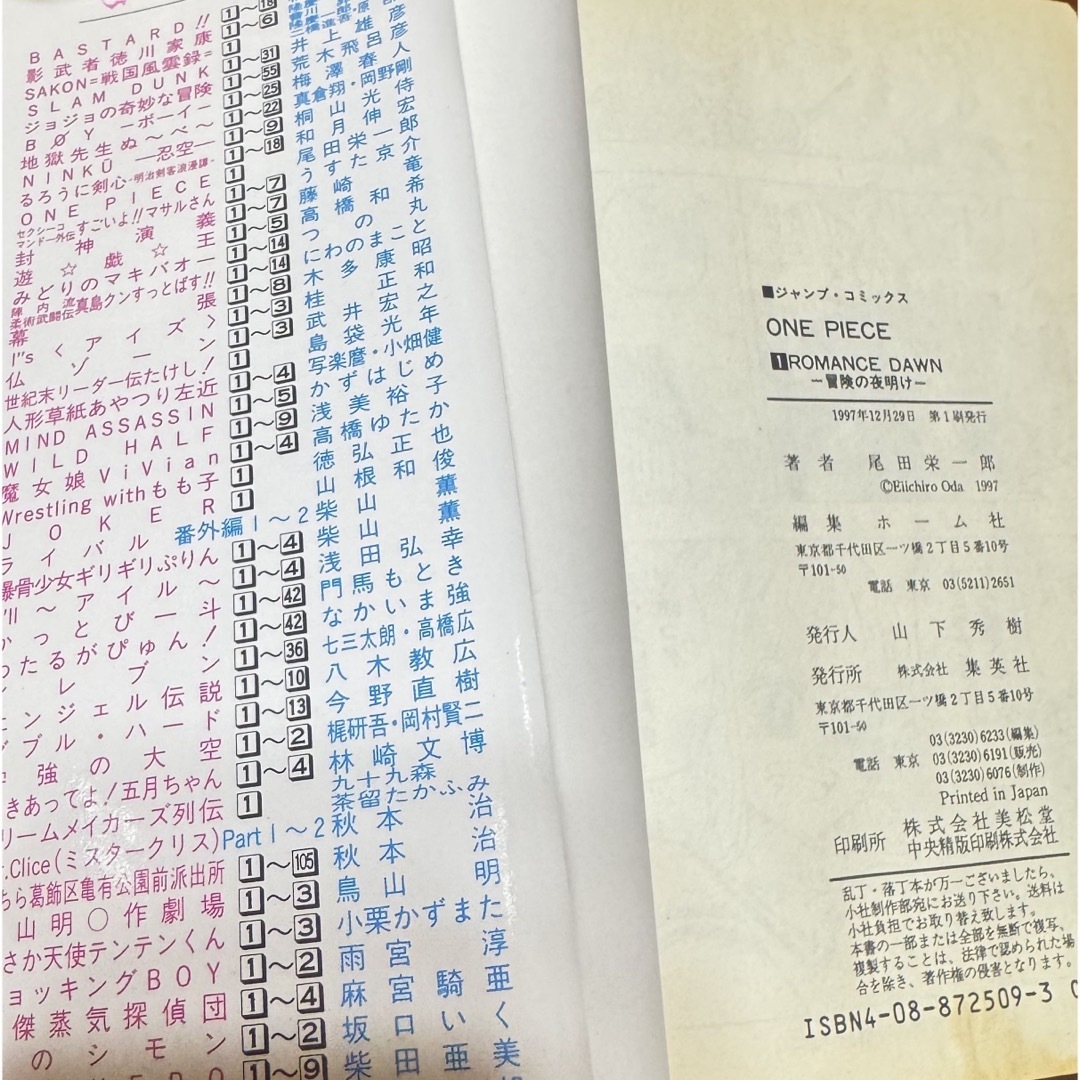 BASTARD!!
影武者徳川家康
SAKON=戦国風雲録=
SLAM DUNK
ジョジョの奇妙な冒険
BØY―ボーイ―
地獄先生ぬ〜べ〜
NINKŪ―忍空―
るろうに剣心-明治剣客浪漫譚-
ONE PIECE
セクシーコマンドー外伝すごいよ!!マサルさん
封神演義
遊☆戯☆王
みどりのマキバオー
陣内流柔術武闘伝真島クンすっとばす!!
幕張
I"s〈アイズ〉
仏ゾーン
世紀末リーダー伝たけし!
人形草紙あやつり左近
MIND ASSASSIN
WILD HALF
魔女娘ViVian
Wrestling withもも子
JOKER
ライバル
暴骨少女ギリギリぷりん
〜アイル〜
かっとび一斗
ったるがぴゅん!
レブン
ェンジェル伝説
ブル・ハード
強の大空
きあってよ!五月ちゃん
リームメイカーズ列伝
.Clice(ミスタークリス)
ちら葛飾区亀有公園前派出所
山明○作劇場
さか天使テンテンくん
ョッキングBOY
傑蒸気探偵団
のシモン
1〜18
1〜6
1
1〜31
1〜55
1〜25
1〜22
1〜9
1〜18
1
1〜7
1〜7
1〜5
1〜14
1〜14
1〜8
1〜3
1〜3
1
1〜4
1〜5
1〜9
1〜4
1
1
番外編1〜2
1〜4
1〜4
1〜42
1〜42
1〜36
1〜10
1〜13
1〜2
1〜4
1
Part1〜2
1〜105
1〜3
1〜3
1〜2
1〜4
1〜2
1〜9
井上雄彦
荒木飛呂彦
梅澤春人
真倉翔・岡野剛
桐山光侍
和月伸宏
尾田栄一郎
うすた京介
藤崎竜
高橋和希
つの丸
にわのまこと
木多康昭
桂正和
武井宏之
島袋光年
写楽麿・小畑健
かずはじめ
浅美裕子
高橋ゆたか
徳弘正也
山根和俊
柴山薫
柴山薫
浅田弘幸
門馬もとき
なかいま強
七三太朗・高橋広
八木教広
今野直樹
梶研吾・岡村賢二
林崎文博
九十九森
茶留たかふみ
秋本治
秋本治
鳥山明
小栗かずまた
雨宮淳
麻宮騎亜
坂口いく
柴田亜美
■ジャンプ・コミックス
ONE PIECE
1 ROMANCE DAWN
―冒険の夜明け―
1997年12月29日 第1刷発行
著者 尾田栄一郎
©Eiichiro Oda 1997
編集 ホーム社
東京都千代田区一ツ橋2丁目5番10号
〒101-50
電話 東京 03(5211)2651
発行人 山下秀樹
発行所 株式会社 集英社
東京都千代田区一ツ橋2丁目5番10号
〒101-50
03(3230)6233(編集)
電話 東京 03(3230)6191(販売)
03(3230)6076(制作)
Printed in Japan
印刷所 株式会社美松堂
中央精版印刷株式会社
乱丁・落丁本が万一ございましたら、
小社制作部宛にお送り下さい。送料は
小社負担でお取り替え致します。
本書の一部または全部を無断で複写、
複製することは、法律で認められた場
合を除き、著作権の侵害となります。
ISBN4-08-872509-3 C